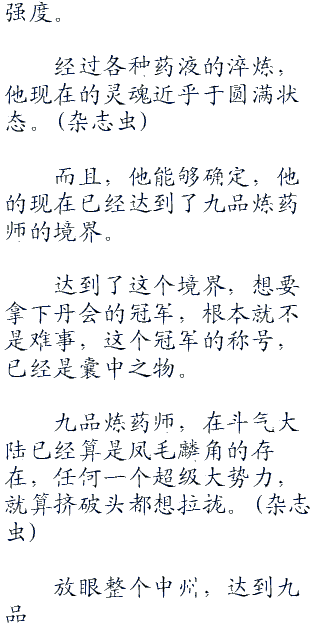 强度。
经过各种药液的淬炼，
他现在的灵魂近乎于圆满状
态。(杂志虫)
而且，他能够确定，他
的现在已经达到了九品炼药
师的境界。
达到了这个境界，想要
拿下丹会的冠军，根本就不
是难事，这个冠军的称号，
已经是囊中之物。
九品炼药师，在斗气大
陆已经算是凤毛麟角的存
在，任何一个超级大势力，
就算挤破头都想拉拢。(杂志
虫)
放眼整个中州，达到九
品